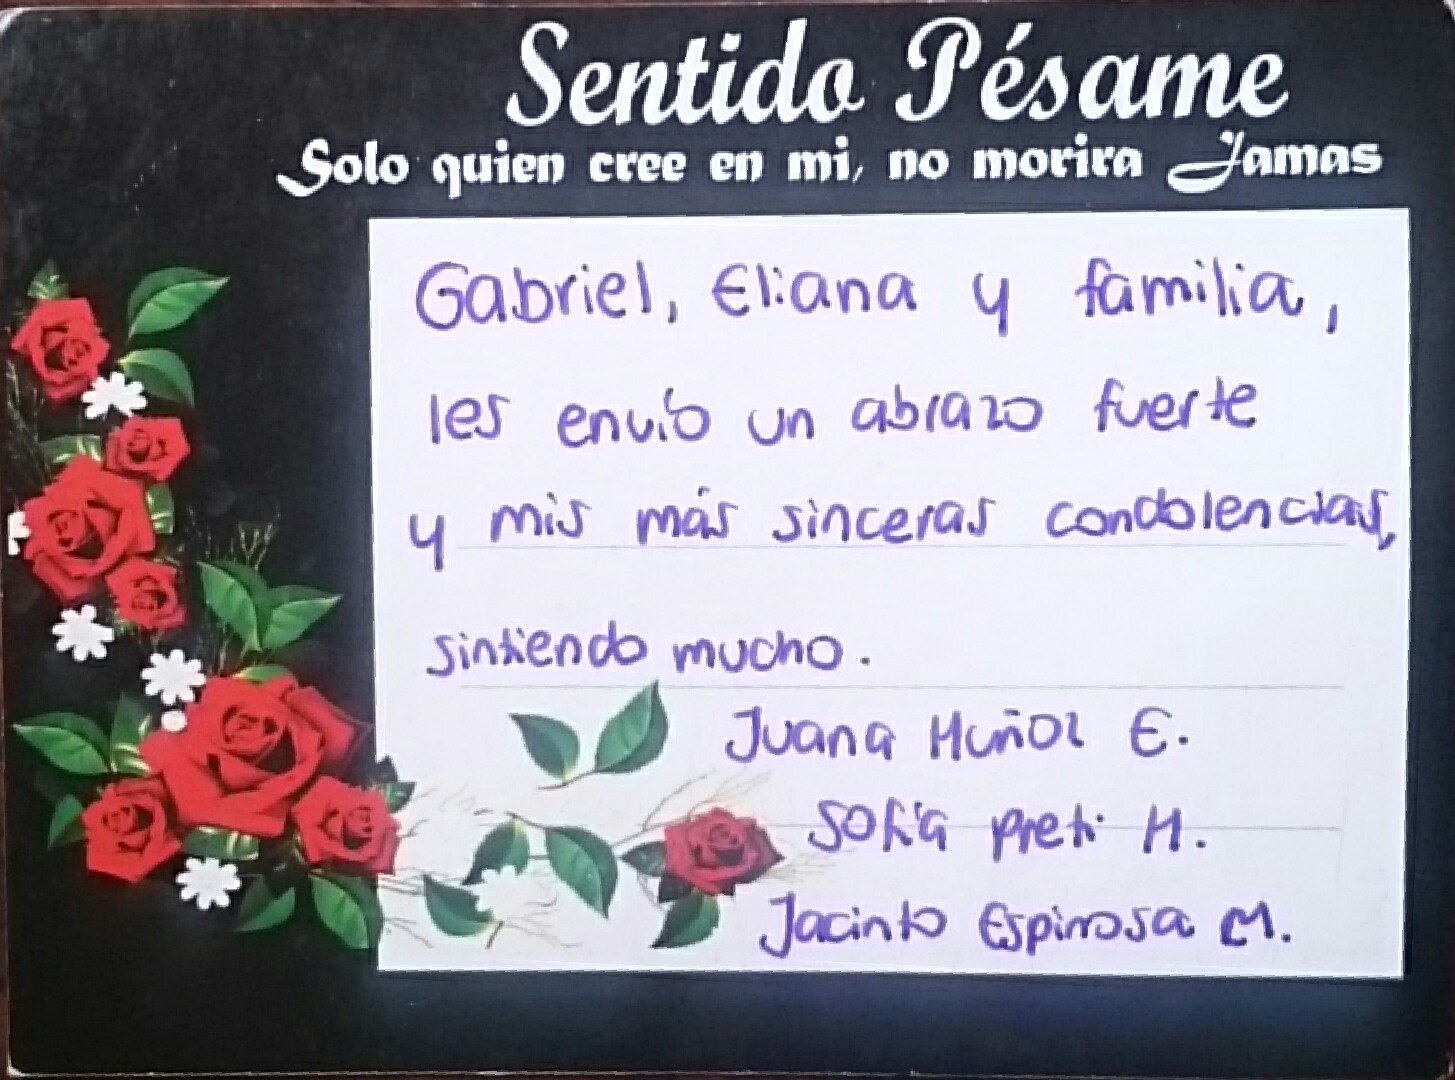 Sentido Pésame
Solo quien cree en mi, no morira Jamas
Gabriel, Eliana y familia,
les envío un abrazo fuerte
y mis más sinceras condolencias,
sintiendo mucho.
Juana Muñoz E.
Sofía Preti M.
Jacinto Espinosa M.